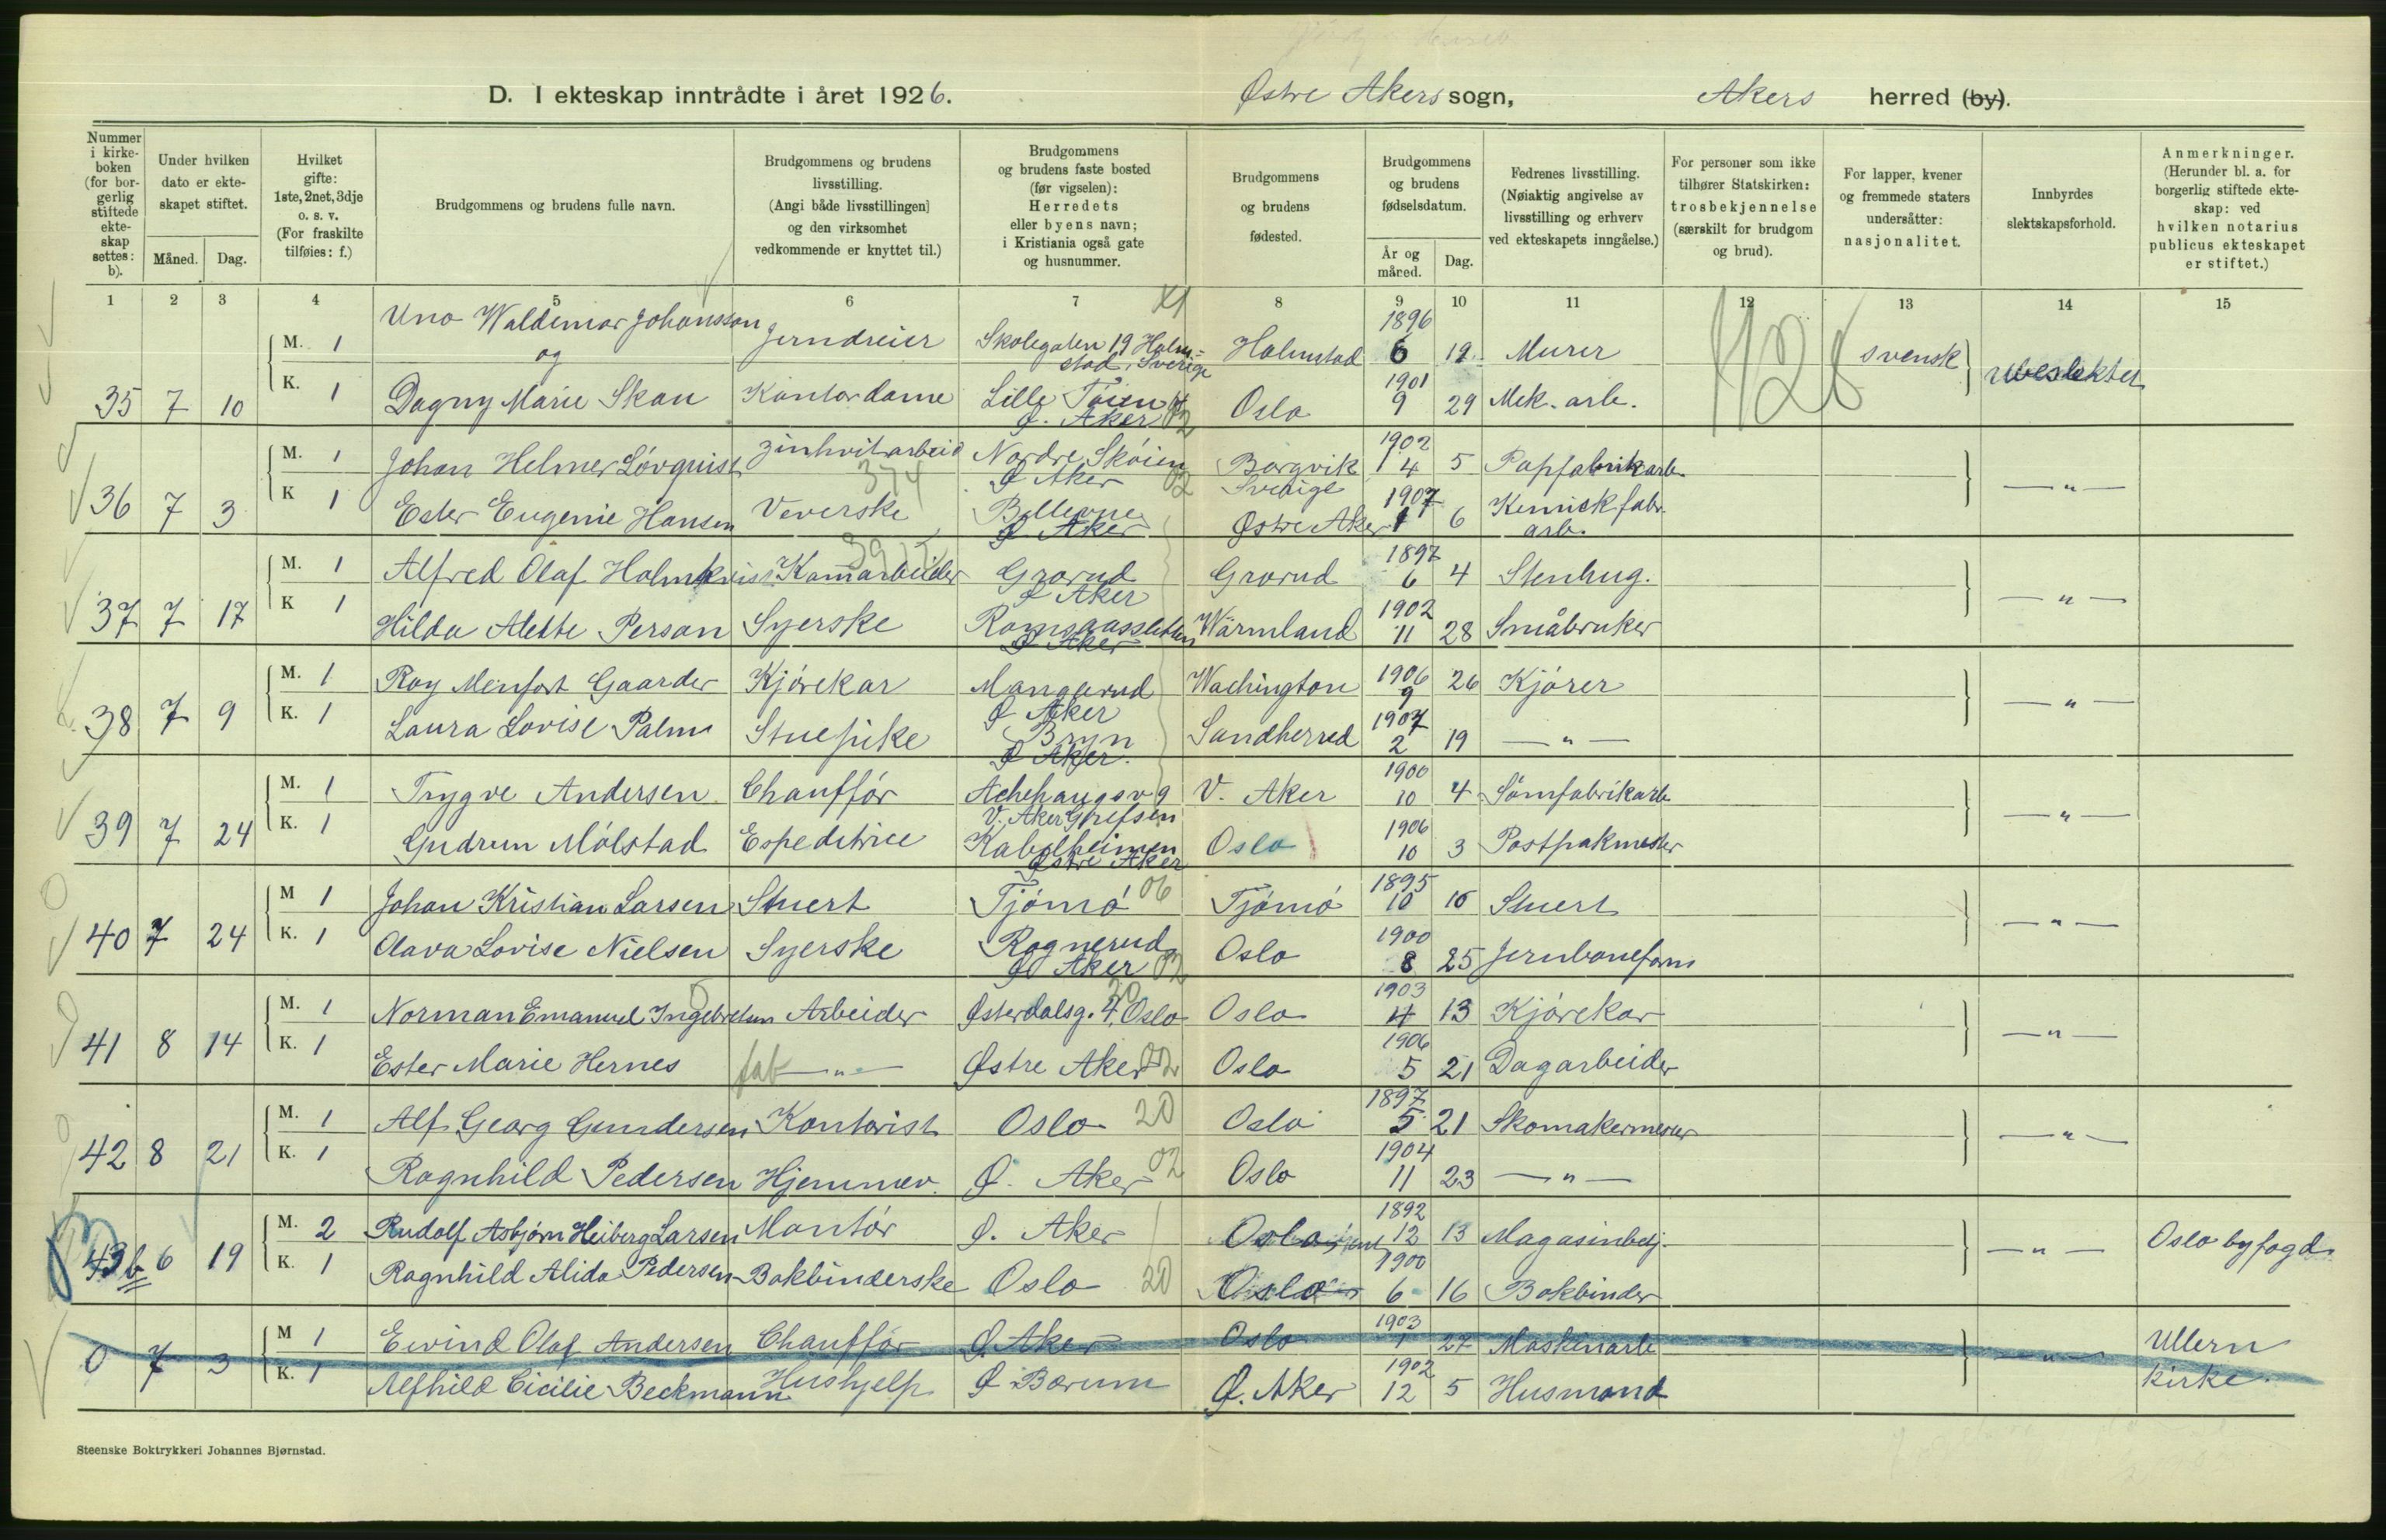 D. I ekteskap inntrådte i året 1926.
Østre Akers sogn,
Akers herred (by).
Nummer i kirke-boken (for bor-gerlig stiftede ekte-skap settes: b).
Under hvilken dato er ekte-skapet stiftet.
Måned. Dag.
Hvilket gifte: 1ste, 2net, 3dje o. s. v. (For fraskilte tilføies: f.)
Brudgommens og brudens fulle navn.
Brudgommens og brudens livsstilling. (Angi både livsstillingen) og den virksomhet vedkommende er knyttet til.)
Brudgommens og brudens faste bosted (før vigselen): Herredets eller byens navn; i Kristiania også gate og husnummer.
Brudgommens og brudens fødested.
Brudgommens og brudens fødselsdatum.
År og måned. Dag.
Fedrenes livsstilling. (Nøiaktig angivelse av livsstilling og erhverv ved ekteskapets inngåelse.)
For personer som ikke tilhører Statskirken: trosbekjennelse (særskilt for brudgom og brud).
For lapper, kvener og fremmede staters undersåtter: nasjonalitet.
Innbyrdes slektskapsforhold.
Anmerkninger. (Herunder bl. a. for borgerlig stiftede ekte-skap: ved hvilken notarius publicus ekteskapet er stiftet.)
1 2 3 4 5 6 7 8 9 10 11 12 13 14 15
M. 1 Uno Waldemar Johansson Jerndreier Skolegaten 19 Halm=stad, Sverige Halmstad 1896 6 19 Murer svensk ubeslektet
og
35 7 10 K. 1 Dagny Marie Skau Kontordame Lille Tøien Ø. Aker 02 Oslo 1901 9 29 Mek. arb.
M. 1 Johan Helmer Lövquist Zinkvitarbeid Nordre Skøien Ø Aker 02 Borgvik Sverige 1902 4 5 Papfabrikarb. — " —
36 7 3 K 1 Ester Eugenie Hansen Veverske Bellevue Ø Aker Østre Aker 1907 1 6 Kemisk fabr. arb.
M. 1 Alfred Olaf Holmkvist Kamarbeider Grorud Ø Aker Grorud 1897 6 4 Stenhug. — " —
37 7 17 K 1 Hilda Alette Person Syerske Romsaassletten Ø Aker Wärmland 1902 11 28 Småbruker
M. 1 Roy Menfort Gaarder Kjørekar Manglerud Ø Aker Wachington 1906 9 26 Kjører — " —
38 7 9 K. 1 Laura Lovise Palm Stuepike Bryn Ø Aker. Sandherred 1907 2 19 — " —
M. 1 Trygve Andersen Chauffør Achehaugsv 9 V. Aker Grefsen V. Aker 1900 10 4 Sømfabrikarb. — " —
39 7 24 K. 1 Gudrun Mølstad Espeditrice Kabelheimen Østre Aker Oslo 1906 10 3 Postpakmester
M 1 Johan Kristian Larsen Stuert Tjømø 06 Tjømø 1895 10 16 Stuert — " —
40 7 24 K. 1 Olava Lovise Nielsen Syerske Rognerud Ø Aker 02 Oslo 1900 8 25 Jernbaneform
M. 1 Norman Emanuel Ingebretsen Arbeider Østerdalsg. 4, Oslo 20 Oslo 1903 4 13 Kjørekar — " —
41 8 14 K. 1 Ester Marie Hernes fab — " — Østre Aker 02 Oslo 1906 5 21 Dagarbeider
M. 1 Alf Georg Gundersen Kontorist Oslo 20 Oslo 1897 5 21 Skomakermester — " —
42 8 21 K. 1 Ragnhild Pedersen Hjemmev. Ø. Aker 02 Oslo 1904 11 23 — " —
M. 2 Rudolf Asbjørn Heiberg Larsen Montør Ø. Aker Oslo 1892 12 13 Magasinbetj. — " — Oslo byfogd.
43b 6 19 K. 1 Ragnhild Alida Pedersen Bokbinderske Oslo 20 Oslo 1900 6 16 Bokbinder
M 1 Eivind Olaf Andersen Chauffør Ø Aker Oslo 1903 1 27 Maskinarb — " — Ullern kirke.
0 7 3 K. 1 Alfhild Cicilie Beckmann Hushjelp Ø Bærum Ø. Aker 1902 12 5 Husmand
Steenske Boktrykkeri Johannes Bjørnstad.